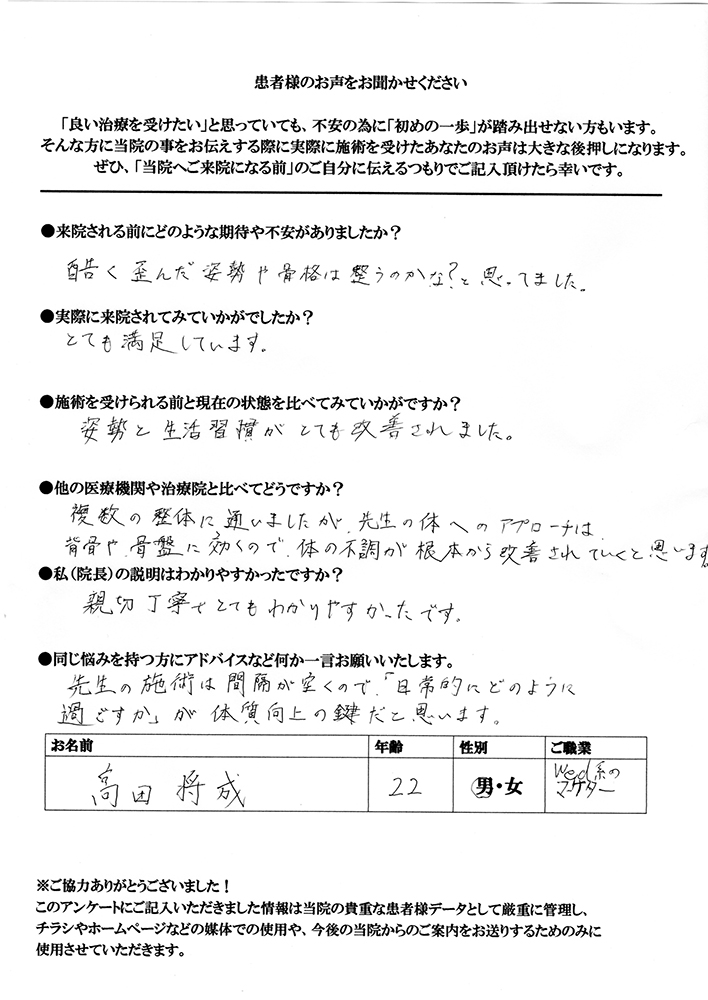 患者様のお声をお聞かせください
「良い治療を受けたい」と思っていても、不安の為に「初めの一歩」が踏み出せない方もいます。
そんな方に当院の事をお伝えする際に実際に施術を受けたあなたのお声は大きな後押しになります。
ぜひ、「当院へご来院になる前」のご自分に伝えるつもりでご記入頂けたら幸いです。
●来院される前にどのような期待や不安がありましたか?
酷く歪んだ姿勢や骨格は整うのかな?と思ってました。
●実際に来院されてみていかがでしたか?
とても満足しています。
●施術を受けられる前と現在の状態を比べてみていかがですか?
姿勢と生活習慣がとても改善されました。
●他の医療機関や治療院と比べてどうですか?
複数の整体に通いましたが、先生の体へのアプローチは、
背骨や、骨盤に効くので、体の不調が根本から改善されていくと思います
●私(院長)の説明はわかりやすかったですか?
親切丁寧でとてもわかりやすかったです。
●同じ悩みを持つ方にアドバイスなど何か一言お願いいたします。
先生の施術は間隔が空くので、「日常的にどのように
過ごすか」が体質向上の鍵だと思います。
お名前 年齢 性別 ご職業
高田 将成 22 男・女 Wed系の
マーケター
※ご協力ありがとうございました!
このアンケートにご記入いただきました情報は当院の貴重な患者様データとして厳重に管理し、
チラシやホームページなどの媒体での使用や、今後の当院からのご案内をお送りするためのみに
使用させていただきます。